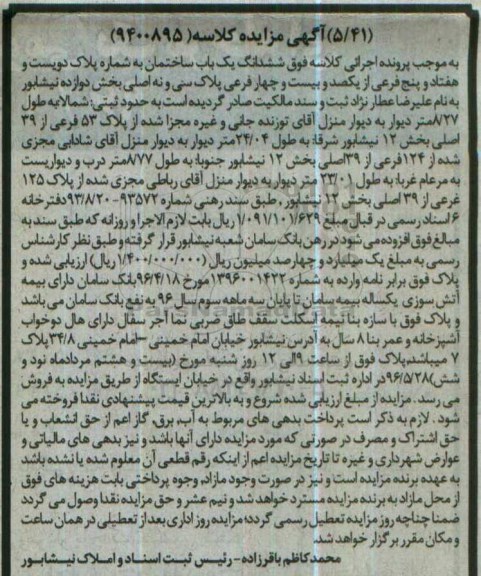 (۵/۴۱)آگهی مزایده کلاسه( ۹۴۰۰۸۹۵)
به موجب پرونده اجرائی کلاسه فوق ششدانگ یک باب ساختمان به شماره پلاک دویست و
هفتاد و پنج فرعی از یکصد و بیست و چهار فرعی پلاک سی و نه اصلی بخش دوازده نیشابور
به نام علیرضا عطار نژاد ثبت و سند مالکیت صادر گردیده است به حدود ثبتی: شمالا به طول
۸۲۷متر دیوار به دیوار منزل آقای توزنده جانی و غیره مجزا شده از پلاک ۵۳ فرعی از ۳۹
اصلی بخش ۱۲ نیشابور شرقا: به طول ۲۴/۰۴متر دیوار به دیوار منزل آقای شادابی مجزی
شده از ۱۲۴فرعی از ۳۹اصلی بخش ۱۲ نیشابور جنوبا: به طول ۸۷۷متر درب و دیواریست
به مرعام غربا: به طول ۲۳/۰۱ متر دیوار به دیوار منزل آقای رباطی مجزی شده از پلاک ۱۲۵
غرعی از ۳۹ اصلی بخش ۱۲ نیشابور ، طبق سند رهنی شماره ۹۳۵۷۲-۹۳/۸/۲۰دفترخانه
۶اسناد رسمی در قبال مبلغ ۱/۰۹۱/۱۰۱/۶۲۹ ریال بابت لازم الاجرا و روزانه که طبق سند به
مبالغ فوق افزوده می شود در رهن بانک سامان شعبه نیشابور قرار گرفته و طبق نظر کارشناس
رسمی به مبلغ یک میلیارد و چهارصد میلیون ریال (۱/۴۰۰/۰۰۰/۰۰۰ ریال) ارزیابی شده و
پلاک فوق برابر نامه وارده به شماره ۱۳۹۶۰۰۱۴۲۲ مورخ ۹۶/۴/۱۸بانک سامان دارای بیمه
آتش سوزی یکساله بیمه سامان تا پایان سه ماهه سوم سال ۹۶ به نفع بانک سامان می باشد
و پلاک فوق با سازه بنا نیمه اسکلت سقف طاق ضربی نما آجر سفال دارای هال دوخواب
آشپزخانه و عمر بنا ۸ سال به آدرس نیشابور خیابان امام خمینی -امام خمینی ۳۴/۸پلاک
۷ میباشد،پلاک فوق از ساعت ۹الی ۱۲ روز شنبه مورخ (بیست و هشتم مردادماه نود و
شش)۹۶/۵/۲۸در اداره ثبت اسناد نیشابور واقع در خیابان ایستگاه از طریق مزایده به فروش
می رسد . مزایده از مبلغ ارزیابی شده شروع و به بالاترین قیمت پیشنهادی نقدا فروخته می
شود . لازم به ذکر است پرداخت بدهی های مربوط به آب، برق، گاز اعم از حق انشعاب و یا
حق اشتراک و مصرف در صورتی که مورد مزایده دارای آنها باشد و نیز بدهی های مالیاتی و
عوارض شهرداری و غیره تا تاریخ مزایده اعم از اینکه رقم قطعی آن معلوم شده یا نشده باشد
به عهده برنده مزایده است و نیز در صورت وجود مازاد، وجوه پرداختی بابت هزینه های فوق
از محل مازاد به برنده مزایده مسترد خواهد شد و نیم عشر و حق مزایده نقدا وصول می گردد
ضمنا چناچه روز مزایده تعطیل رسمی گردد؛ مزایده روز اداری بعد از تعطیلی در همان ساعت
و مکان مقرر برگزار خواهد شد.
محمدکاظم باقرزاده - رئیس ثبت اسناد و املاک نیشابور